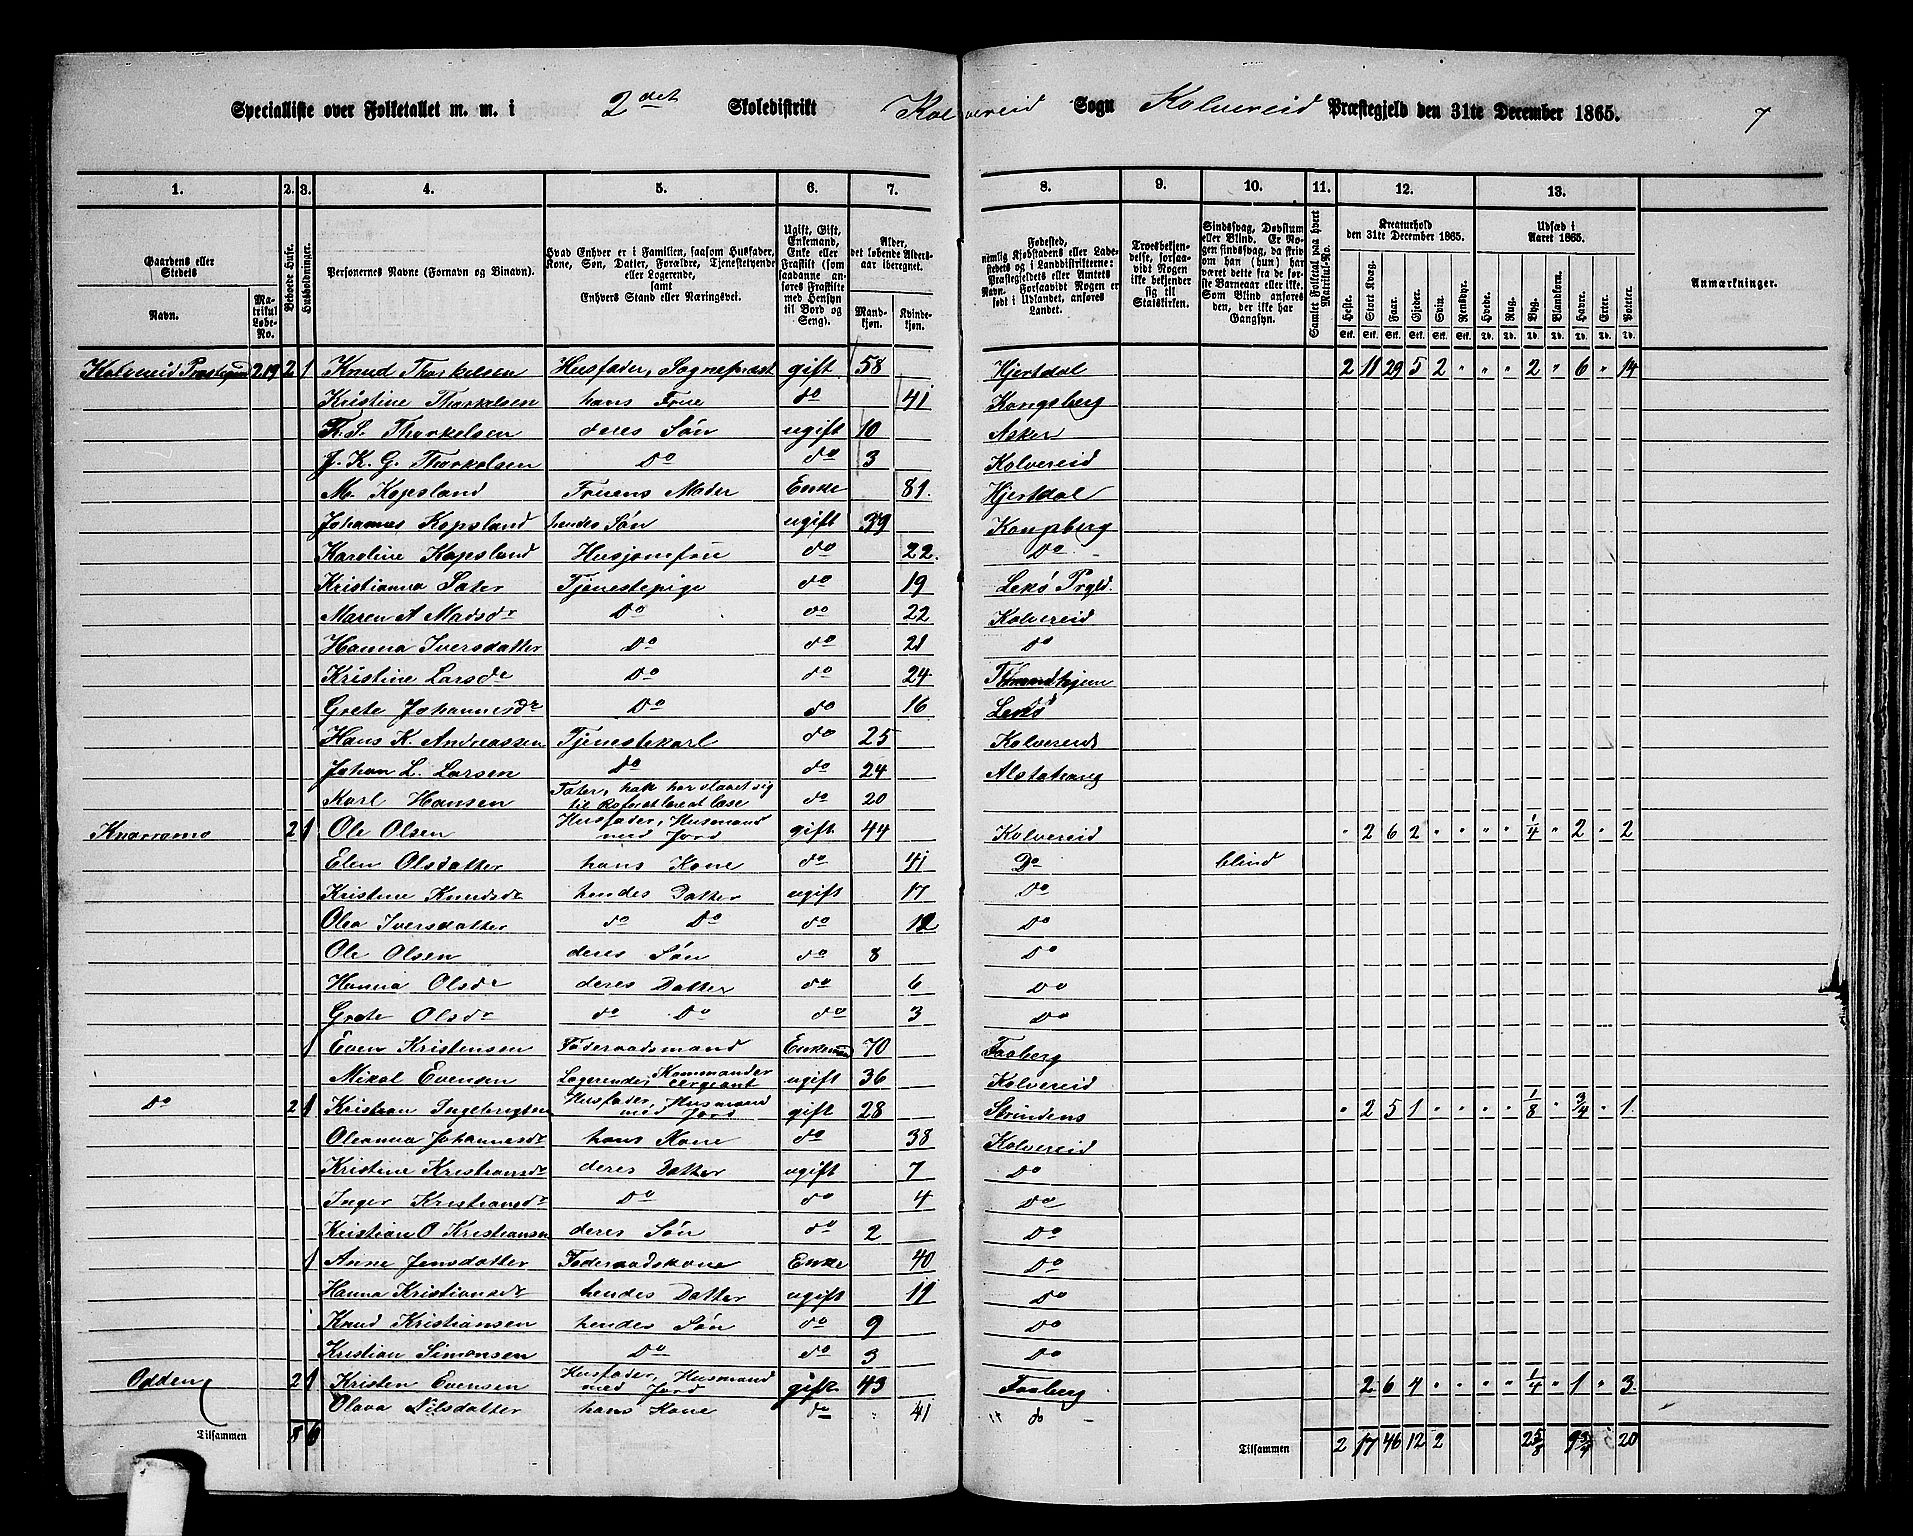 Specialliste over Folketallet m. m. i 2det Skoledistrikt Kolvereid Sogn Kolvereid Præstegjeld den 31te December 1865. 7
1. 2. 3. 4. 5. 6. 7. 8. 9. 10. 11. 12. 13.
Gaardens eller Stedets Navn. Matrikul Løbe-No. Beboede Huse. Husholdninger. Personernes Navne (Fornavn og Binavn). Hvad Enhver er i Familien, saasom Husfader, Kone, Søn, Datter, Forældre, Tjenestetyende eller Logerende, samt Enhvers Stand eller Næringsvei. Ugift, Gift, Enkemand, Enke eller Fraskilt (som saadanne anføres Fraskilte med Hensyn til Bord og Seng). Alder, det løbende Aldersaar iberegnet. Mandkjøn. Kvindekjøn.
Fødested, nemlig Kjøbstadens eller Ladestedets og i Landdistrikterne: Præstegjeldets eller Amtets Navn. Forsaavidt Nogen er født i Udlandet, anføres Landet. Troesbekjendelse, forsaavidt Nogen ikke bekjender sig til Statskirken. Sindssvag, Døvstum eller Blind. Er Nogen sindssvag, da skrives om han (hun) har været dette fra de første Barneaar eller ikke. Som Blind anføres den, der ikke har Gangsyn. Samlet Folketal paa hvert Matrikul-No. Kreaturhold den 31te December 1865. Heste. Stort Kvæg. Faar. Gjeder. Svin. Rensdyr. Udsæd i Aaret 1865. Hvede. Rug. Byg. Blandkorn. Havre. Erter. Poteter. Anmærkninger.
Kolvereid 219 2 1 Knud Thorkelsen Husfader, Sognepræst gift 58 Hjertdal 2 11 29 5 2 " " " 2 " 6 " 14
Kristine Thorkelsen hans Frue do 41 Kongsberg
Thorkelsen deres Søn ugift 10 Asker
J. K. G. Thorkelsen Do do 3 Kolvereid
M. Kopsland Fruens Moder Enke 81. Hjertdal
Johannes Kopsland hendes Søn ugift 39 Kongsberg
Karoline Kopsland Husjomfru do 22. Do
Kristianna Sater Tjenestepige do 19 Lekø Prgld.
Maren A Madsdr Do do 22 Kolvereid
Hanna Iversdatter Do do 21 Do
Kristine Larsdr Do do 24
Grete Johannesdr Do do 16 Lekø
Hans K. Andreassen Tjenestekarl do 25 Kolvereid
Johan L. Larsen Do do 24 Alstahaug
Karl Hansen do 20
2 1 Ole Olsen Husfader, Husmand med Jord gift 44 Kolvereid " 2 6 2 " " " " 1/4 " 2 " 2
Elen Olsdatter hans Kone do 41 Do blind
Kristine Knudsdr hendes Datter ugift 17 Do
Olea Iversdatter do Do do 12 Do
Ole Olsen deres Søn do 8 Do
Hanna Olsdr deres Datter do 6 Do
Grete Olsdr do Do do 3 Do
1 Even Kristensen Føderaadsmand Enkemand 70 Faaberg
Mikal Evensen Logerende, Kommandersergeant ugift 36 Kolvereid
Do 2 1 Kristian Ingebrigtsen Husfader, Husmand med Jord gift 28 Strindens " 2 5 1 " " " " 1/8 " 3/4 " 1.
Oleanna Johannesdr hans Kone do 38 Kolvereid
Kristine Kristiansdr deres Datter ugift 7 Do
Inger Kristiansdr Do do 4 Do
Kristian O Kristiansen deres Søn do 2 Do
1 Anne Jensdatter Føderaadskone Enke 40 Do
Hanna Kristiansdr hendes Datter ugift 11 Do
Knud Kristiansen hendes Søn do 9 Do
Kristian Simonsen Do do 3 Do
Odden 2 1 Kristen Evensen Husfader, Husmand med Jord gift 43 Faaberg 2 6 4 " " " " 1/4 " 1 " 3.
Olava Nilsdatter hans Kone do 41 do
Tilsammen 8 6 Tilsammen 2 17 46 12 2 2 5/8 9 3/4 20